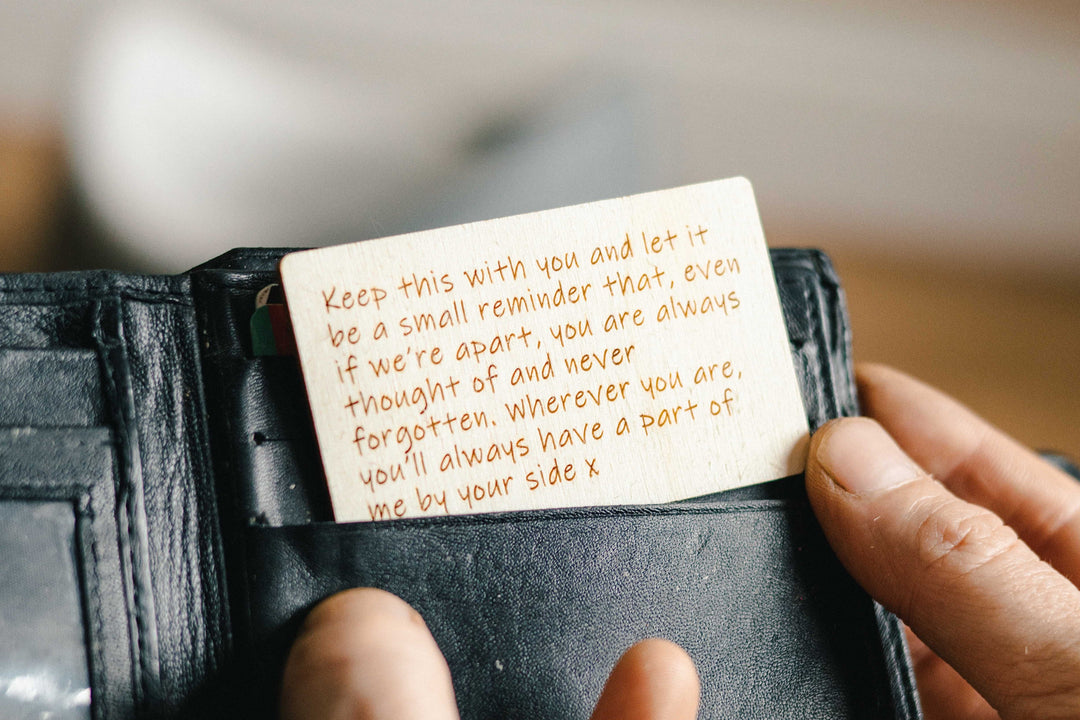 Keep this with you and let it
be a small reminder that, even
if we're apart, you are always
thought of and never
forgotten. Wherever you are,
you'll always have a part of
me by your side x